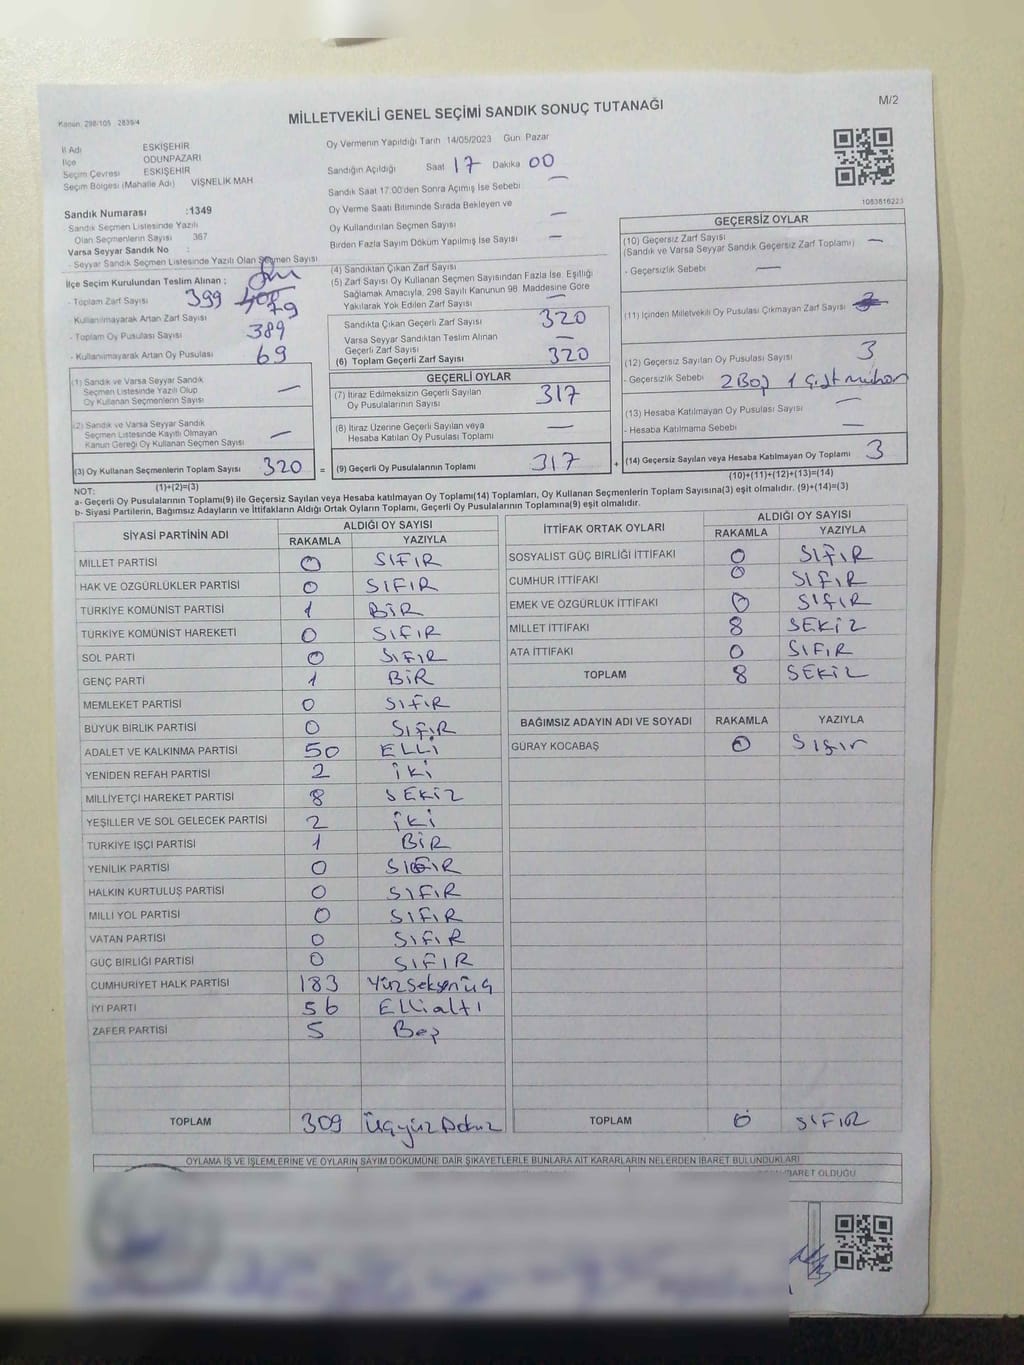 Kanun 298/105 2839/4
MİLLETVEKİLİ GENEL SEÇİMİ SANDIK SONUÇ TUTANAĞI
M/2
İl Adı ESKİŞEHİR
İlçe ODUNPAZARI
Seçim Çevresi ESKİŞEHİR
Seçim Bölgesi (Mahalle Adı) VİŞNELİK MAH
Sandık Numarası :1349
Sandık Seçmen Listesinde Yazılı
Olan Seçmenlerin Sayısı 367
Varsa Seyyar Sandık No :
- Seyyar Sandık Seçmen Listesinde Yazılı Olan Seçmen Sayısı
Oy Vermenin Yapıldığı Tarih 14/05/2023 Gün Pazar
Sandığın Açıldığı Saat 17 Dakika 00
Sandık Saat 17:00'den Sonra Açımış İse Sebebi —
Oy Verme Saati Bitiminde Sırada Bekleyen ve
Oy Kullandırılan Seçmen Sayısı —
Birden Fazla Sayım Döküm Yapılmış İse Sayısı —
1083816223
İlçe Seçim Kurulundan Teslim Alınan ;
- Toplam Zarf Sayısı 399
- Kullanılmayarak Artan Zarf Sayısı 79
- Toplam Oy Pusulası Sayısı 389
- Kullanılmayarak Artan Oy Pusulası 69
(1) Sandık ve Varsa Seyyar Sandık
Seçmen Listesinde Yazılı Olup
Oy Kullanan Seçmenlerin Sayısı —
(2) Sandık ve Varsa Seyyar Sandık
Seçmen Listesinde Kayıtlı Olmayan
Kanun Gereği Oy Kullanan Seçmen Sayısı —
(3) Oy Kullanan Seçmenlerin Toplam Sayısı 320 =
(1)+(2)=(3)
(4) Sandıktan Çıkan Zarf Sayısı
(5) Zarf Sayısı Oy Kullanan Seçmen Sayısından Fazla İse, Eşitliği
Sağlamak Amacıyla, 298 Sayılı Kanunun 98. Maddesine Göre
Yakılarak Yok Edilen Zarf Sayısı —
Sandıkta Çıkan Geçerli Zarf Sayısı 320
Varsa Seyyar Sandıktan Teslim Alınan
Geçerli Zarf Sayısı —
(6) Toplam Geçerli Zarf Sayısı 320
GEÇERLİ OYLAR
(7) İtiraz Edilmeksizin Geçerli Sayılan
Oy Pusulalarının Sayısı 317
(8) İtiraz Üzerine Geçerli Sayılan veya
Hesaba Katılan Oy Pusulası Toplamı —
(9) Geçerli Oy Pusulalarının Toplamı 317 +
GEÇERSİZ OYLAR
(10) Geçersiz Zarf Sayısı
(Sandık ve Varsa Seyyar Sandık Geçersiz Zarf Toplamı) —
- Geçersizlik Sebebi —
(11) İçinden Milletvekili Oy Pusulası Çıkmayan Zarf Sayısı
(12) Geçersiz Sayılan Oy Pusulası Sayısı 3
- Geçersizlik Sebebi 2 Boş 1 Çift mühür
(13) Hesaba Katılmayan Oy Pusulası Sayısı —
- Hesaba Katılmama Sebebi —
(14) Geçersiz Sayılan veya Hesaba Katılmayan Oy Toplamı 3
(10)+(11)+(12)+(13)=(14)
NOT:
a- Geçerli Oy Pusulalarının Toplamı(9) ile Geçersiz Sayılan veya Hesaba katılmayan Oy Toplamı(14) Toplamları, Oy Kullanan Seçmenlerin Toplam Sayısına(3) eşit olmalıdır. (9)+(14)=(3)
b- Siyasi Partilerin, Bağımsız Adayların ve İttifakların Aldığı Ortak Oyların Toplamı, Geçerli Oy Pusulalarının Toplamına(9) eşit olmalıdır.
SİYASİ PARTİNİN ADI ALDIĞI OY SAYISI
RAKAMLA YAZIYLA
MİLLET PARTİSİ 0 SIFIR
HAK VE ÖZGÜRLÜKLER PARTİSİ 0 SIFIR
TÜRKİYE KOMÜNİST PARTİSİ 1 BİR
TÜRKİYE KOMÜNİST HAREKETİ 0 SIFIR
SOL PARTİ 0 SIFIR
GENÇ PARTİ 1 BİR
MEMLEKET PARTİSİ 0 SIFIR
BÜYÜK BİRLİK PARTİSİ 0 SIFIR
ADALET VE KALKINMA PARTİSİ 50 ELLİ
YENİDEN REFAH PARTİSİ 2 İKİ
MİLLİYETÇİ HAREKET PARTİSİ 8 SEKİZ
YEŞİLLER VE SOL GELECEK PARTİSİ 2 İKİ
TÜRKİYE İŞÇİ PARTİSİ 1 BİR
YENİLİK PARTİSİ 0 SIFIR
HALKIN KURTULUŞ PARTİSİ 0 SIFIR
MİLLİ YOL PARTİSİ 0 SIFIR
VATAN PARTİSİ 0 SIFIR
GÜÇ BİRLİĞİ PARTİSİ 0 SIFIR
CUMHURİYET HALK PARTİSİ 183 Yüzseksenüç
İYİ PARTİ 56 Ellialtı
ZAFER PARTİSİ 5 Beş
TOPLAM 309 Üçyüz Dokuz
İTTİFAK ORTAK OYLARI ALDIĞI OY SAYISI
RAKAMLA YAZIYLA
SOSYALİST GÜÇ BİRLİĞİ İTTİFAKI 0 SIFIR
CUMHUR İTTİFAKI 0 SIFIR
EMEK VE ÖZGÜRLÜK İTTİFAKI 0 SIFIR
MİLLET İTTİFAKI 8 SEKİZ
ATA İTTİFAKI 0 SIFIR
TOPLAM 8 SEKİZ
BAĞIMSIZ ADAYIN ADI VE SOYADI RAKAMLA YAZIYLA
GÜRAY KOCABAŞ 0 Sıfır
TOPLAM 0 SIFIR
OYLAMA İŞ VE İŞLEMLERİNE VE OYLARIN SAYIM DÖKÜMÜNE DAİR ŞİKAYETLERLE BUNLARA AİT KARARLARIN NELERDEN İBARET BULUNDUKLARI
İBARET OLDUĞU